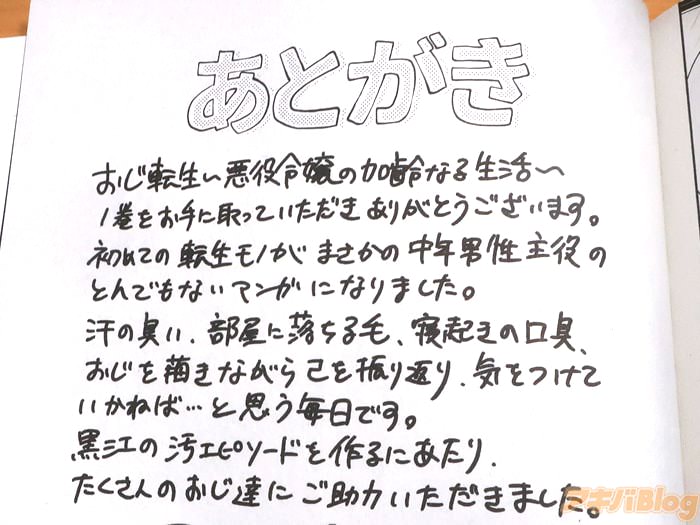 あとがき
おじ転生〜悪役令嬢の加齢なる生活〜
1巻をお手に取っていただきありがとうございます。
初めての転生モノがまさかの中年男性主役の
とんでもないマンガになりました。
汗の臭い、部屋に落ちる毛、寝起きの口臭、
おじを描きながら己を振り返り、気をつけて
いかねば…と思う毎日です。
黒江の汚エピソードを作るにあたり、
たくさんのおじ達にご助力いただきました。
アキバBlog